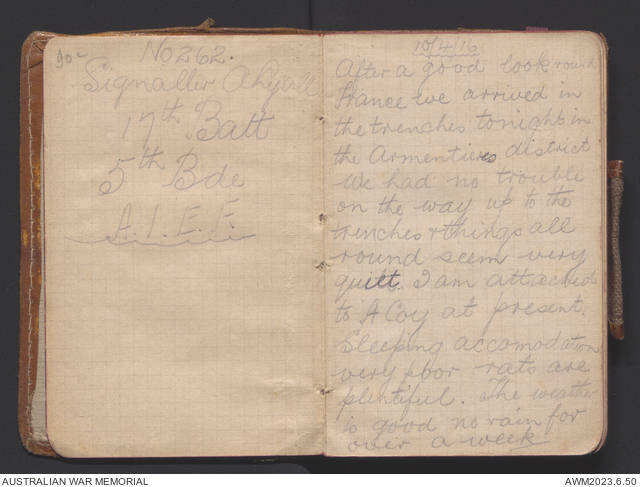 No 262.
Signaller
17th Batt
5th Bde
A.I.E.F.
10/4/16
After a good look round
France we arrived in
the trenches tonight in
the Armentieres district
We had no trouble
on the way up to the
trenches & things all
round seem very
quiett. I am attached
to A Coy at present.
Sleeping accomodation
very poor rats are
plentiful. The weather
is good no rain for
over a week
AUSTRALIAN WAR MEMORIAL
AWM2023.6.50